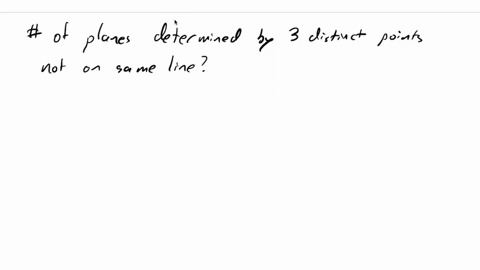 # of planes determined by 3 distinct points
not on same line?